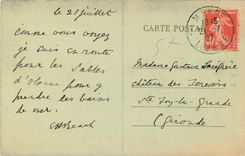 le 21 juillet
comme vous voyez
je suis en route
pour les Sables
d'Olonne pour y
prendre des bains
de mer.
CARTE POSTALE
Madame Gustave
château des
Ste Foy-la-Grande
(Gironde